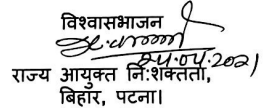 विश्वासभाजन
24.04.2021
राज्य आयुक्त निःशक्तता,
बिहार, पटना।